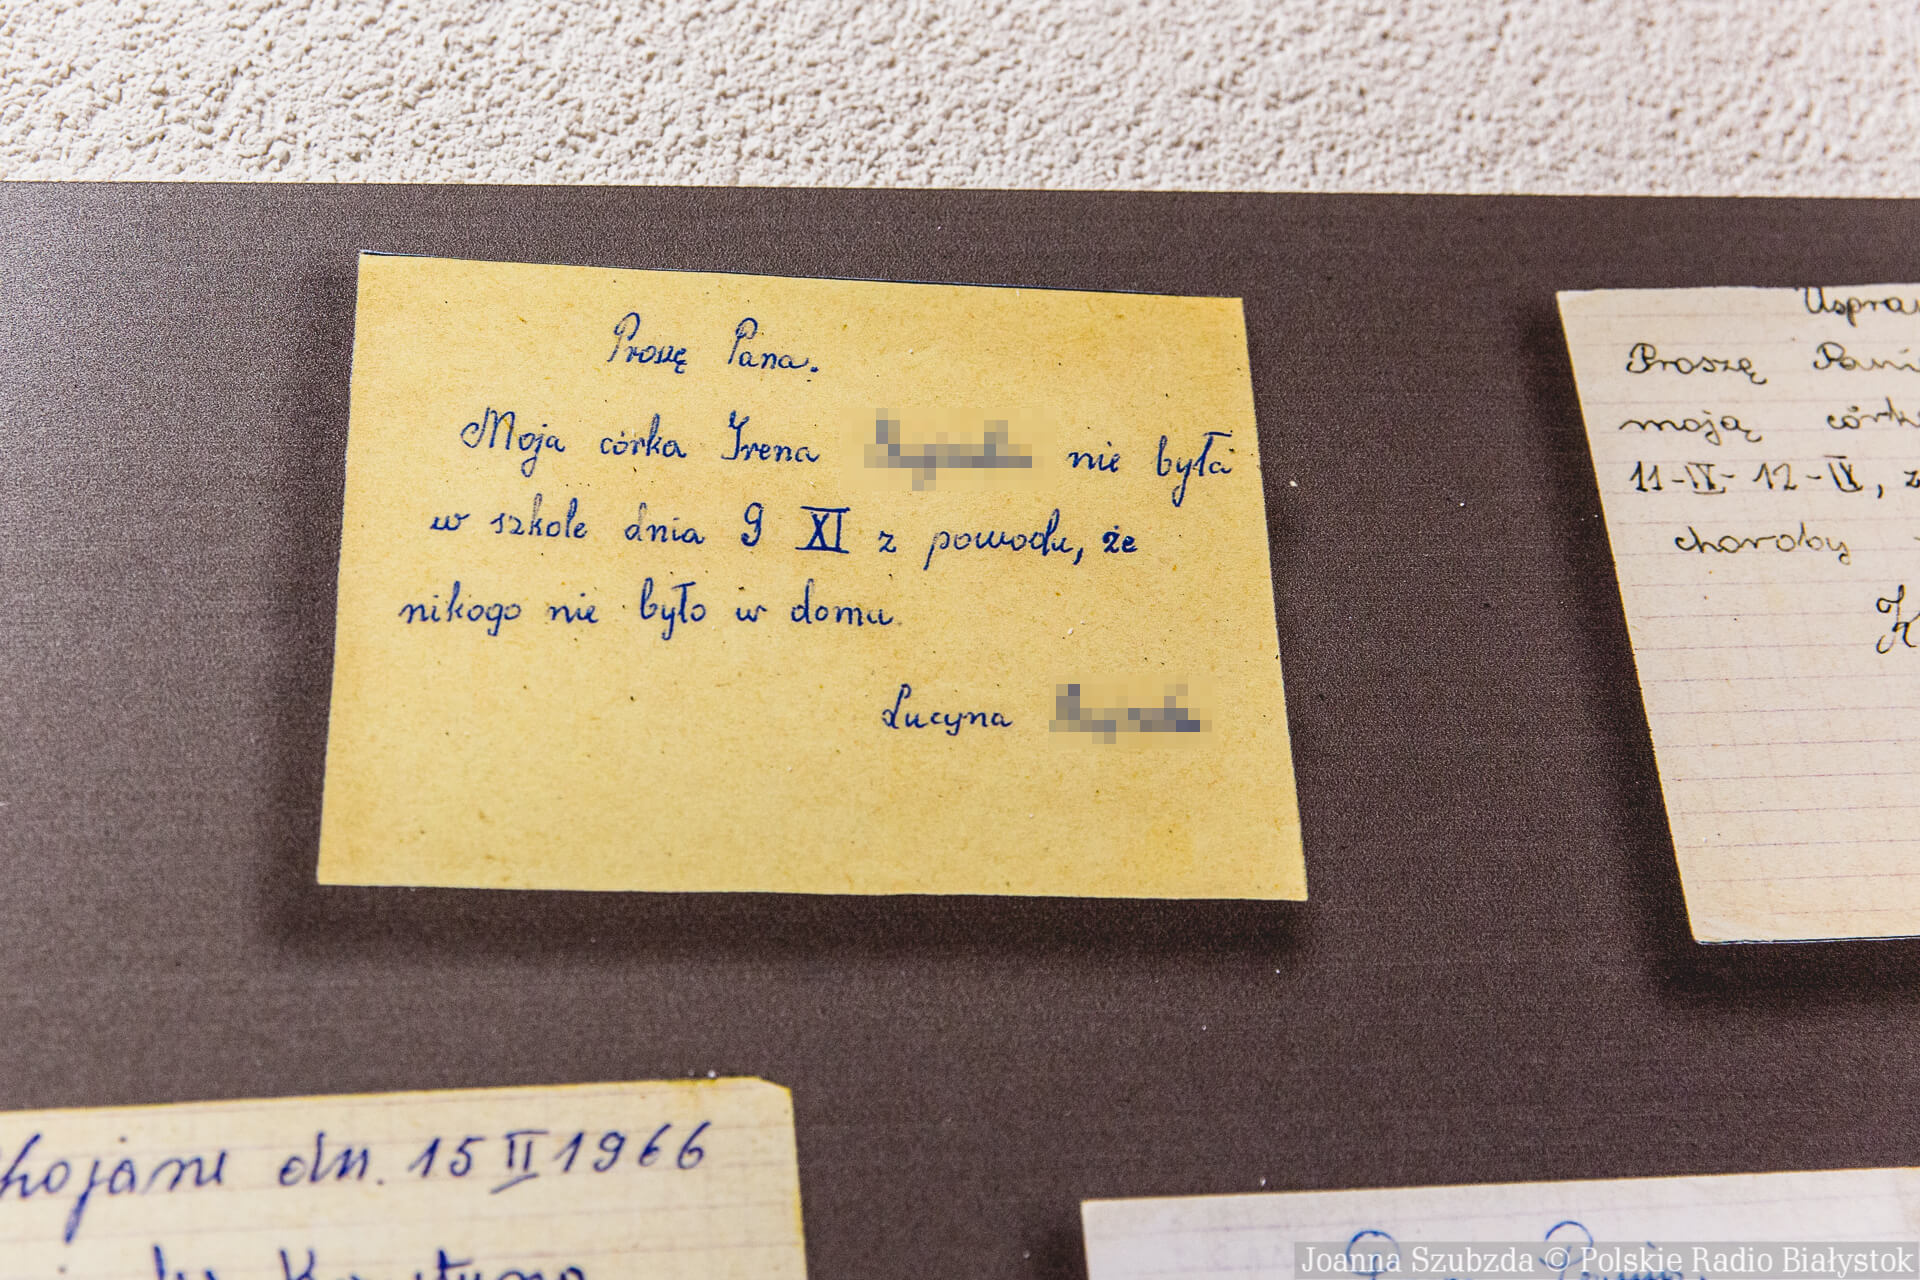 Proszę Pana.
Moja córka Irena nie była
w szkole dnia 9 XI z powodu, że
nikogo nie było w domu
Lucyna
Proszę
moją
11-IX- 12-IX, z
choroby
K
dn. 15 II 1966
Joanna Szubzda © Polskie Radio Białystok